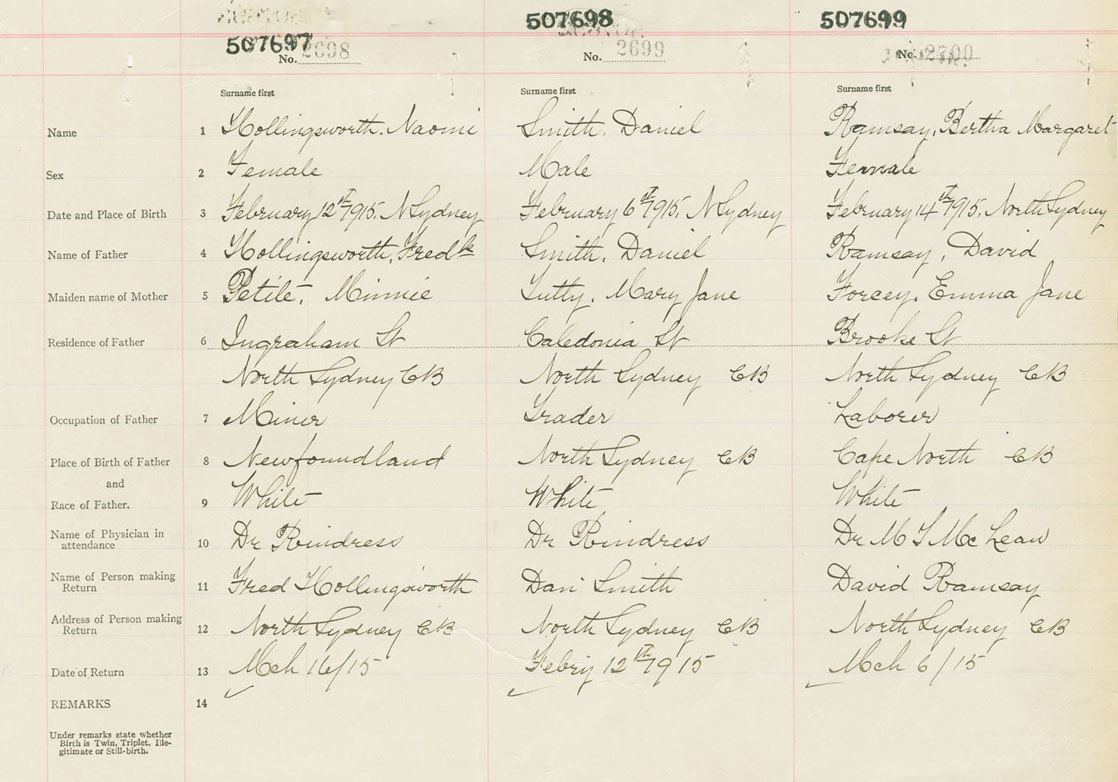 507697 507698 507699
No. 2698 No. 2699 No. 2700
Surname first Surname first Surname first
Name 1 Hollingsworth, Naomi Smith, Daniel Ramsay, Bertha Margaret
Sex 2 Female Male Female
Date and Place of Birth 3 February 12th 1915. N Sydney February 6th 1915. N Sydney February 14th 1915. North Sydney
Name of Father 4 Hollingsworth, Fredk Smith, Daniel Ramsay, David
Maiden name of Mother 5 Petite, Minnie Tutty, Mary Jane Forcey, Emma Jane
Residence of Father 6 Ingraham St Caledonia St Brooke St
North Sydney CB North Sydney CB North Sydney CB
Occupation of Father 7 Miner Trader Laborer
Place of Birth of Father 8 Newfoundland North Sydney CB Cape North CB
and
Race of Father. 9 White White White
Name of Physician in
attendance 10 Dr Rindress Dr Rindress Dr M McLean
Name of Person making
Return 11 Fred Hollingsworth Danl Smith David Ramsay
Address of Person making
Return 12 North Sydney CB North Sydney CB North Sydney CB
Date of Return 13 Mch 16/15 Febry 12th 1915 Mch 6/15
REMARKS 14
Under remarks state whether
Birth is Twin, Triplet, Ille-
gitimate or Still-birth.